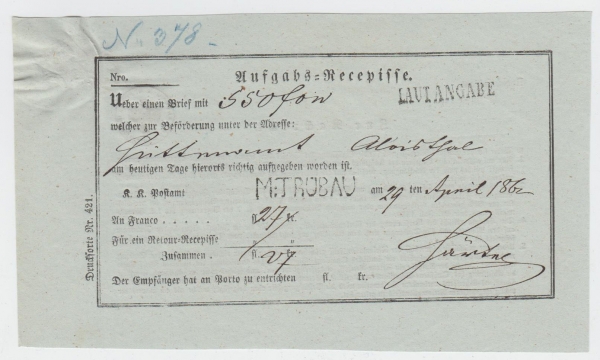 N. 378.
Nro.
Aufgabs-Recepisse.
Ueber einen Brief mit 550
LAUT ANGABE
welcher zur Beförderung unter der Adresse:
Hüttenamt Aloisthal
am heutigen Tage hierorts richtig aufgegeben worden ist.
K. K. Postamt M:TRÜBAU am 29 ten April 186
An Franco . . . . . fl. 27 kr.
Für ein Retour-Recepisse
Zusammen . fl. 27
Der Empfänger hat an Porto zu entrichten fl. kr.
Drucksorte Nr. 421.